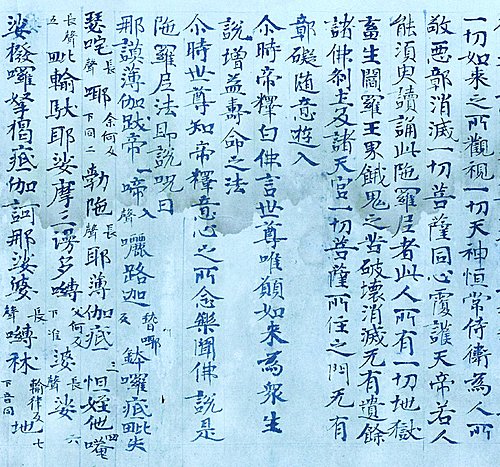 一切如来之所觀視一切天神恒常侍衛為人所
敬惡鄣消滅一切菩薩同心覆護天帝若人
能須臾讀誦此陁羅尼者此人所有一切地獄
畜生閻羅王界餓鬼之苦破壞消滅无有遺餘
諸佛刹土及諸天宮一切菩薩所住之門无有
鄣礙随意遊入
尒時帝釋白佛言世尊唯願如来為衆生
說增益壽命之法
尒時世尊知帝釋意心之所念樂聞佛說是
陁羅尼法即說呪曰
那謨薄伽跋帝一啼聲入囇路迦反替㖿鉢囉底毗失
瑟咤長聲㖿余何反下同二勃陁長聲耶薄伽底三怛姪他四唵
長聲五毗輸馱耶娑摩三謗多嚩父何反下准婆長聲娑六
娑撥囉拏揭底伽訶那娑婆長聲嚩秫輸律反下音同七地